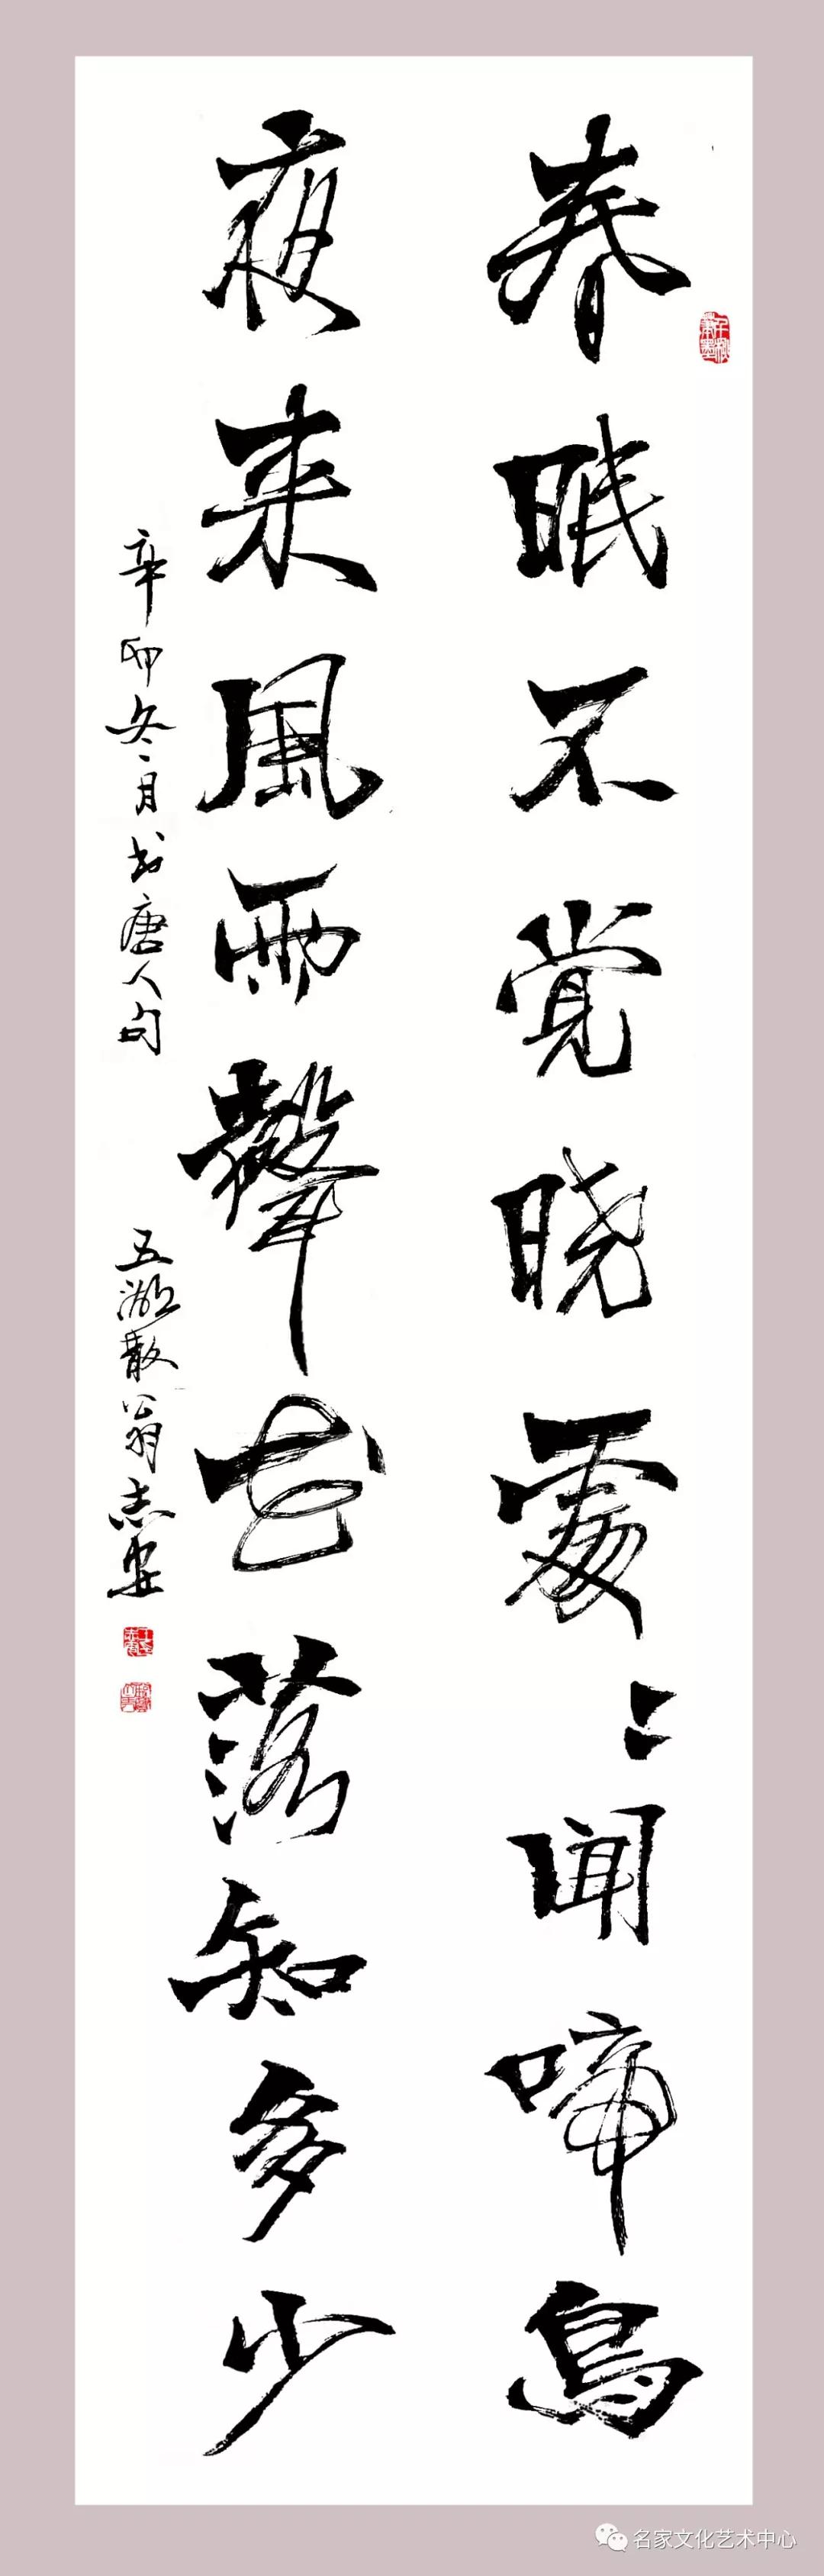 春眠不觉晓處〻聞啼鳥
夜来風雨聲花落知多少
辛卯冬月书唐人句
五湖散翁志安
名家文化艺术中心